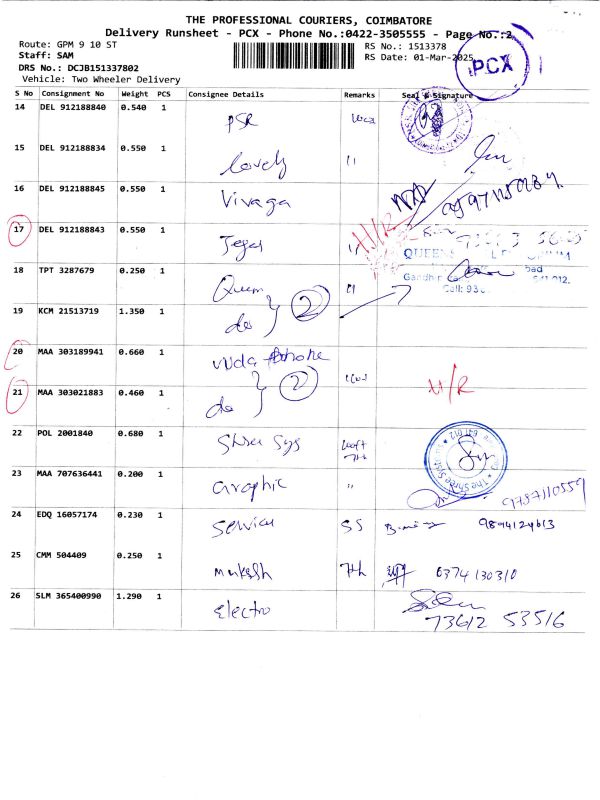 THE PROFESSIONAL COURIERS, COIMBATORE
Delivery Runsheet - PCX - Phone No.:0422-3505555 - Page No.:2
Route: GPM 9 10 ST
RS No.: 1513378
Staff: SAM
RS Date: 01-Mar-2025
DRS No.: DCJB151337802
Vehicle: Two Wheeler Delivery
PCX
S No Consignment No Weight PCS Consignee Details Remarks Seal & Signature
14 DEL 912188840 0.540 1 PSR
15 DEL 912188834 0.550 1 lovely 11
16 DEL 912188845 0.550 1 Vivaga
17 DEL 912188843 0.550 1 H/R
QUEEN
Gandhi
Call: 93
18 TPT 3287679 0.250 1 Queen 11
19 KCM 21513719 1.350 1 do 2
20 MAA 303189941 0.660 1
21 MAA 303021883 0.460 1 do 2 H/R
22 POL 2001840 0.680 1 Shree Sys 7th
23 MAA 707636441 0.200 1 Graphic " 9787110559
24 EDQ 16057174 0.230 1 Service SS 9894124613
25 CMM 504409 0.250 1 Mukesh 7th 6374130310
26 SLM 365400990 1.290 1 Electro
73612 53516